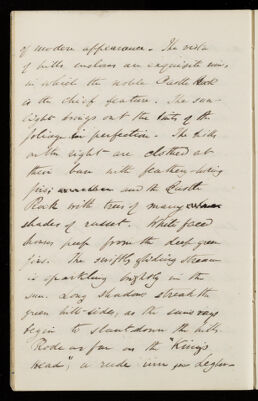 of modern appearance. The vista
of hills encloses an exquisite view,
in which the noble Castle Rock
is the chief feature. The sun-
light brings out the tints of the
foliage in perfection. The hills
on the right are clothed at
their base with feathery-looking
firs and the Castle
Rock with trees of many
shades of russet. White faced
houses peep from the deep green
firs. The swiftly gliding stream
is sparkling brightly in the
sun. Long shadows streak the
green hill-sides, as the sun's rays
begin to slant down the hills.
Rode as far as the "King's
Head", a rude inn